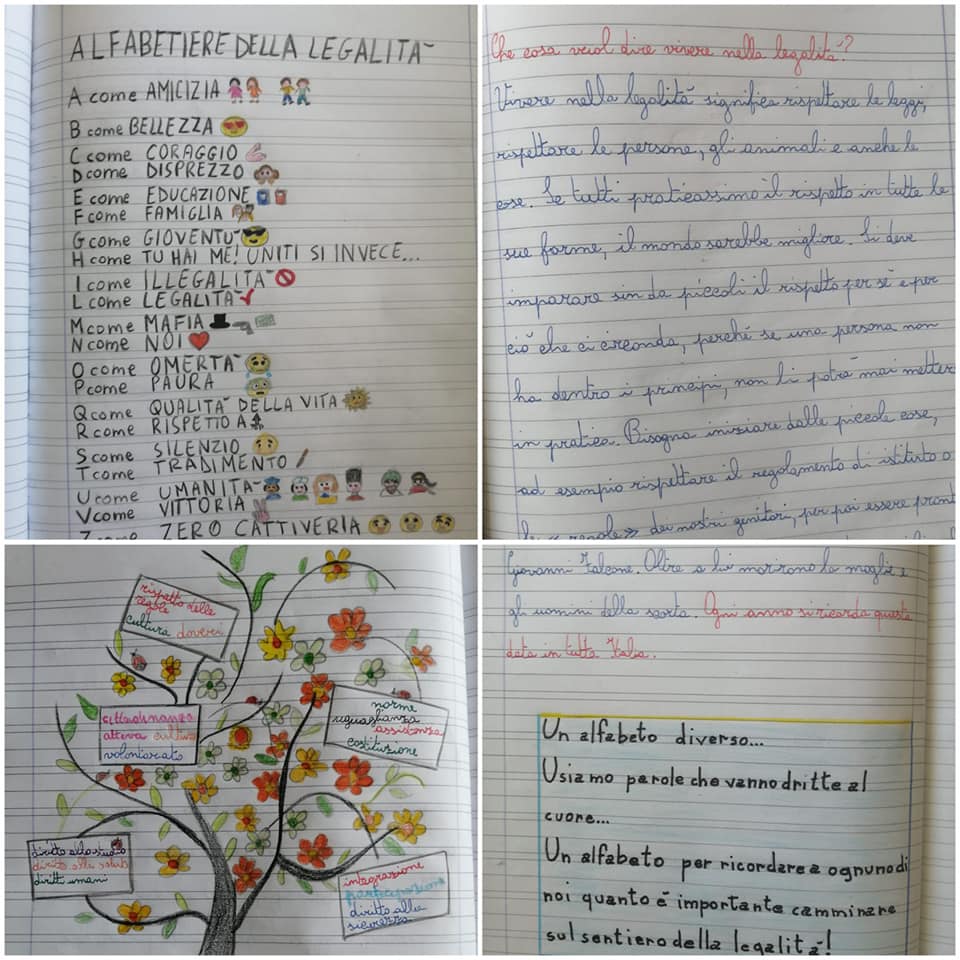 ALFABETIERE DELLA LEGALITÀ
A come AMICIZIA
B come BELLEZZA
C come CORAGGIO
D come DISPREZZO
E come EDUCAZIONE
F come FAMIGLIA
G come GIOVENTÙ
H come TU HAI ME! UNITI SI INVECE...
I come ILLEGALITÀ
L come LEGALITÀ
M come MAFIA
N come NOI
O come OMERTÀ
P come PAURA
Q come QUALITÀ DELLA VITA
R come RISPETTO A
S come SILENZIO
T come TRADIMENTO
U come UMANITÀ
V come VITTORIA
Z come ZERO CATTIVERIA
Che cosa vuol dire vivere nella legalità?
Vivere nella legalità significa rispettare le leggi,
rispettare le persone, gli animali e anche le
cose. Se tutti praticassimo il rispetto in tutte le
sue forme, il mondo sarebbe migliore. Si deve
imparare sin da piccoli il rispetto per sè e per
ciò che ci circonda, perché se una persona non
ha dentro i principi, non li potrà mai metter
in pratica. Bisogna iniziare dalle piccole cose,
ad esempio rispettare il regolamento di istituto o
le «regole» dei nostri genitori, per poi essere pront
rispetto delle
regole
cultura doveri
cittadinanza
attiva
volontariato
norme
uguaglianza
assistenza
costituzione
diritto allo studio
diritto alla salute
diritti umani
integrazione
partecipazione
diritto alla
sicurezza
Giovanni Falcone. Oltre a lui morirono la moglie e
gli uomini della scorta. Ogni anno si ricorda questa
data in tutta Italia.
Un alfabeto diverso...
Usiamo parole che vanno dritte al
cuore...
Un alfabeto per ricordare a ognuno di
noi quanto è importante camminare
sul sentiero della legalità!